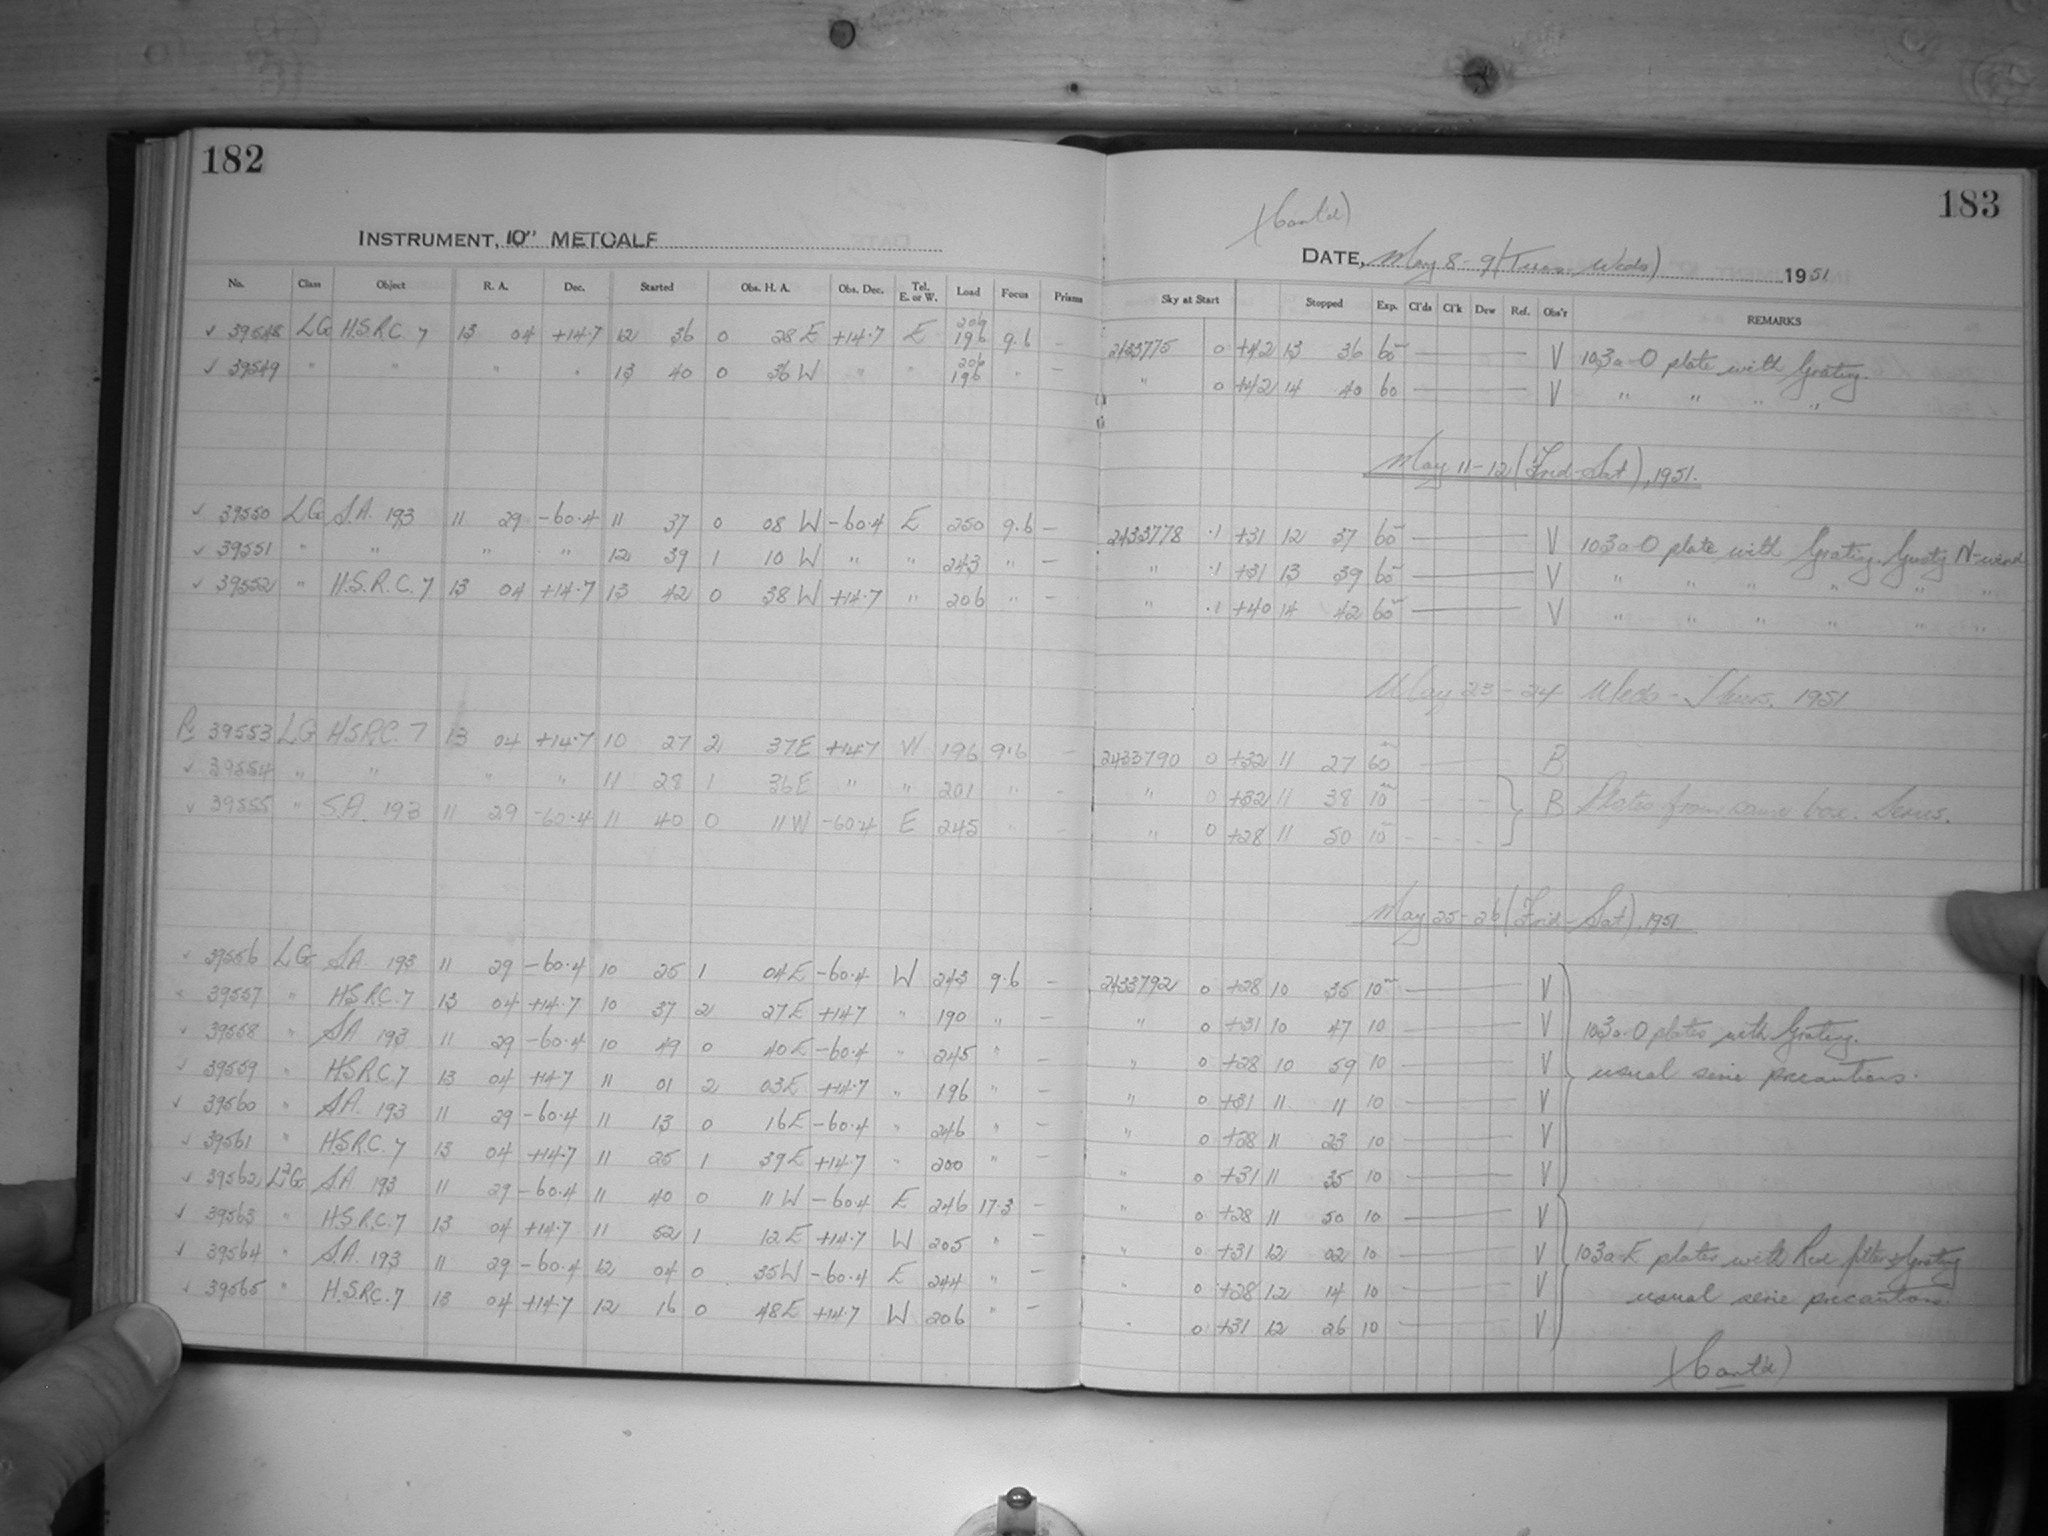 182
INSTRUMENT, 10" METCALF
No. Class Object R. A. Dec. Started Obs. H. A. Obs. Dec. Tel. E. or W. Load Focus Prisms
39548 LG H.S.R.C. 7 13 04 +14.7 12 36 0 28 E +14.7 E 206 196 9.6 –
39549 " " " " 13 40 0 36 W " " 206 196 " –
39550 LG S.A. 193 11 29 -60.4 11 37 0 08 W -60.4 E 250 9.6 –
39551 " " " " 12 39 1 10 W " " 243 " –
39552 " H.S.R.C. 7 13 04 +14.7 13 42 0 38 W +14.7 " 206 " –
39553 LG H.S.R.C. 7 13 04 +14.7 10 27 2 37 E +14.7 W 196 9.6 –
39554 " " " " 11 28 1 36 E " " 201 " –
39555 " S.A. 193 11 29 -60.4 11 40 0 11 W -60.4 E 245 " –
39556 LG S.A. 193 11 29 -60.4 10 25 1 04 E -60.4 W 243 9.6 –
39557 " H.S.R.C. 7 13 04 +14.7 10 37 2 27 E +14.7 " 190 " –
39558 " S.A. 193 11 29 -60.4 10 49 0 40 E -60.4 " 245 " –
39559 " H.S.R.C. 7 13 04 +14.7 11 01 2 03 E +14.7 " 196 " –
39560 " S.A. 193 11 29 -60.4 11 13 0 16 E -60.4 " 246 " –
39561 " H.S.R.C. 7 13 04 +14.7 11 25 1 39 E +14.7 " 200 " –
39562 S.A. 193 11 29 -60.4 11 40 0 11 W -60.4 E 246 17.3 –
39563 " H.S.R.C. 7 13 04 +14.7 11 52 1 12 E +14.7 W 205 " –
39564 " S.A. 193 11 29 -60.4 12 04 0 35 W -60.4 E 244 " –
39565 " H.S.R.C. 7 13 04 +14.7 12 16 0 48 E +14.7 W 206 " –
183
(Cont'd)
DATE, May 8-9 (Tues-Weds) 1951
Sky at Start Stopped Exp. Cl'ds Cl'k Dew Ref. Obs'r REMARKS
2433775 0 +42 13 36 60m V 103a-O plate with Grating.
" 0 +42 14 40 60 V " " " "
May 11-12 (Frid-Sat), 1951.
2433778 .1 +31 12 37 60m V 103a-O plate with Grating. Gusty N-wind
" .1 +31 13 39 60m V " " " " " "
" .1 +40 14 42 60m V " " " " " "
May 23-24 Weds-Thurs. 1951
2433790 0 +32 11 27 60m B
" 0 +32 11 38 10m B Plates from same box. Series.
" 0 +28 11 50 10m
May 25-26 (Frid-Sat), 1951
2433792 0 +28 10 35 10m V
" 0 +31 10 47 10 V 103a-O plates with Grating.
" 0 +28 10 59 10 V usual serie precautions.
" 0 +31 11 11 10 V
" 0 +28 11 23 10 V
" 0 +31 11 35 10 V
" 0 +28 11 50 10 V
" 0 +31 12 02 10 V 103a-E plates with Red filter & Grating
" 0 +28 12 14 10 V usual serie precautions.
" 0 +31 12 26 10 V
(Cont'd)